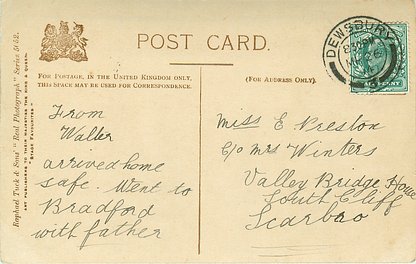 POST CARD.
FOR POSTAGE, IN THE UNITED KINGDOM ONLY,
THIS SPACE MAY BE USED FOR CORRESPONDENCE.
(FOR ADDRESS ONLY).
DEWSBURY
Raphael Tuck & Sons' "Real Photograph" Series
ART PUBLISHERS TO THEIR MAJESTIES THE KING & QUEEN.
"STAGE FAVOURITES"
From
Walter
arrived home
safe. Went to
Bradford
with father
Miss E Preston
C/o Mrs Winters
Valley Bridge House
South Cliff
Scarbro